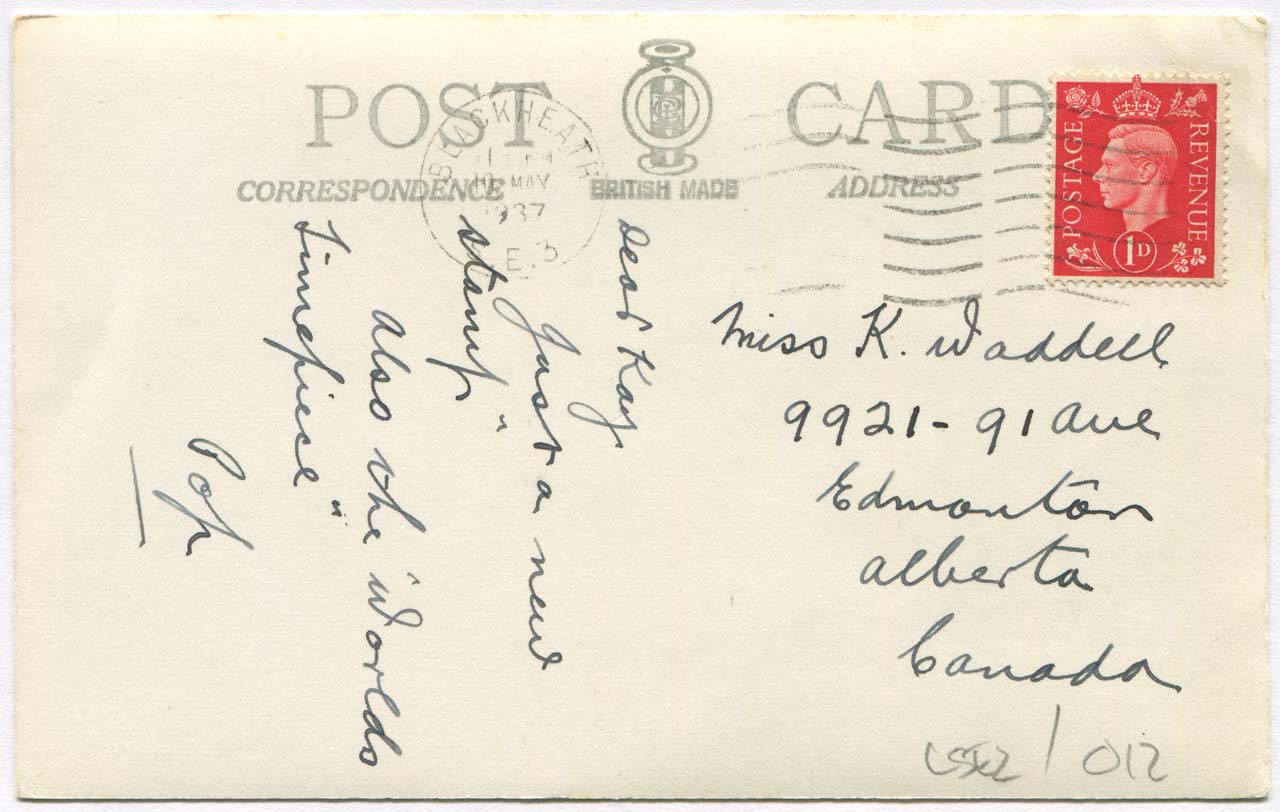 POST CARD
CORRESPONDENCE
BRITISH MADE
ADDRESS
BLACKHEATH
MAY
1937
S.E.3
POSTAGE
REVENUE
1D
Dear Kay
Just a new
stamp"
Also the 'Worlds
Timepiece"
Pop
Miss K. Waddell
9921-91 Ave
Edmonton
Alberta
Canada
/ 012